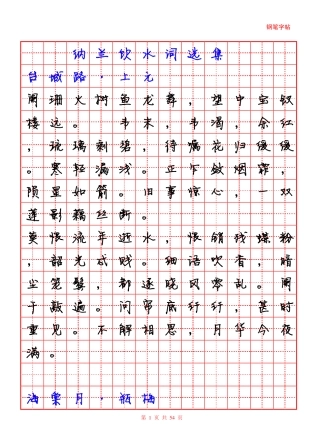 钢笔字帖
纳兰饮水词选集
台城路·上元
阑珊火树鱼龙舞,望中宝钗
楼远。韦末,韦曷,余红
,琉璃剩碧,待嘱花归缓缓
。寒轻漏浅。正乍敛烟霏,
陨星如箭。旧事惊心,一双
莲影藕丝断。
莫恨流年逝水,恨销残蝶粉
,韶光忒贱。细语吹香,暗
尘笼鬓,都逐晓风零乱。阑
干敲遍。问帘底纤纤,甚时
重见。不解相思,月华今夜
满。
海棠月·瓶梅
第 1 页 共 54 页